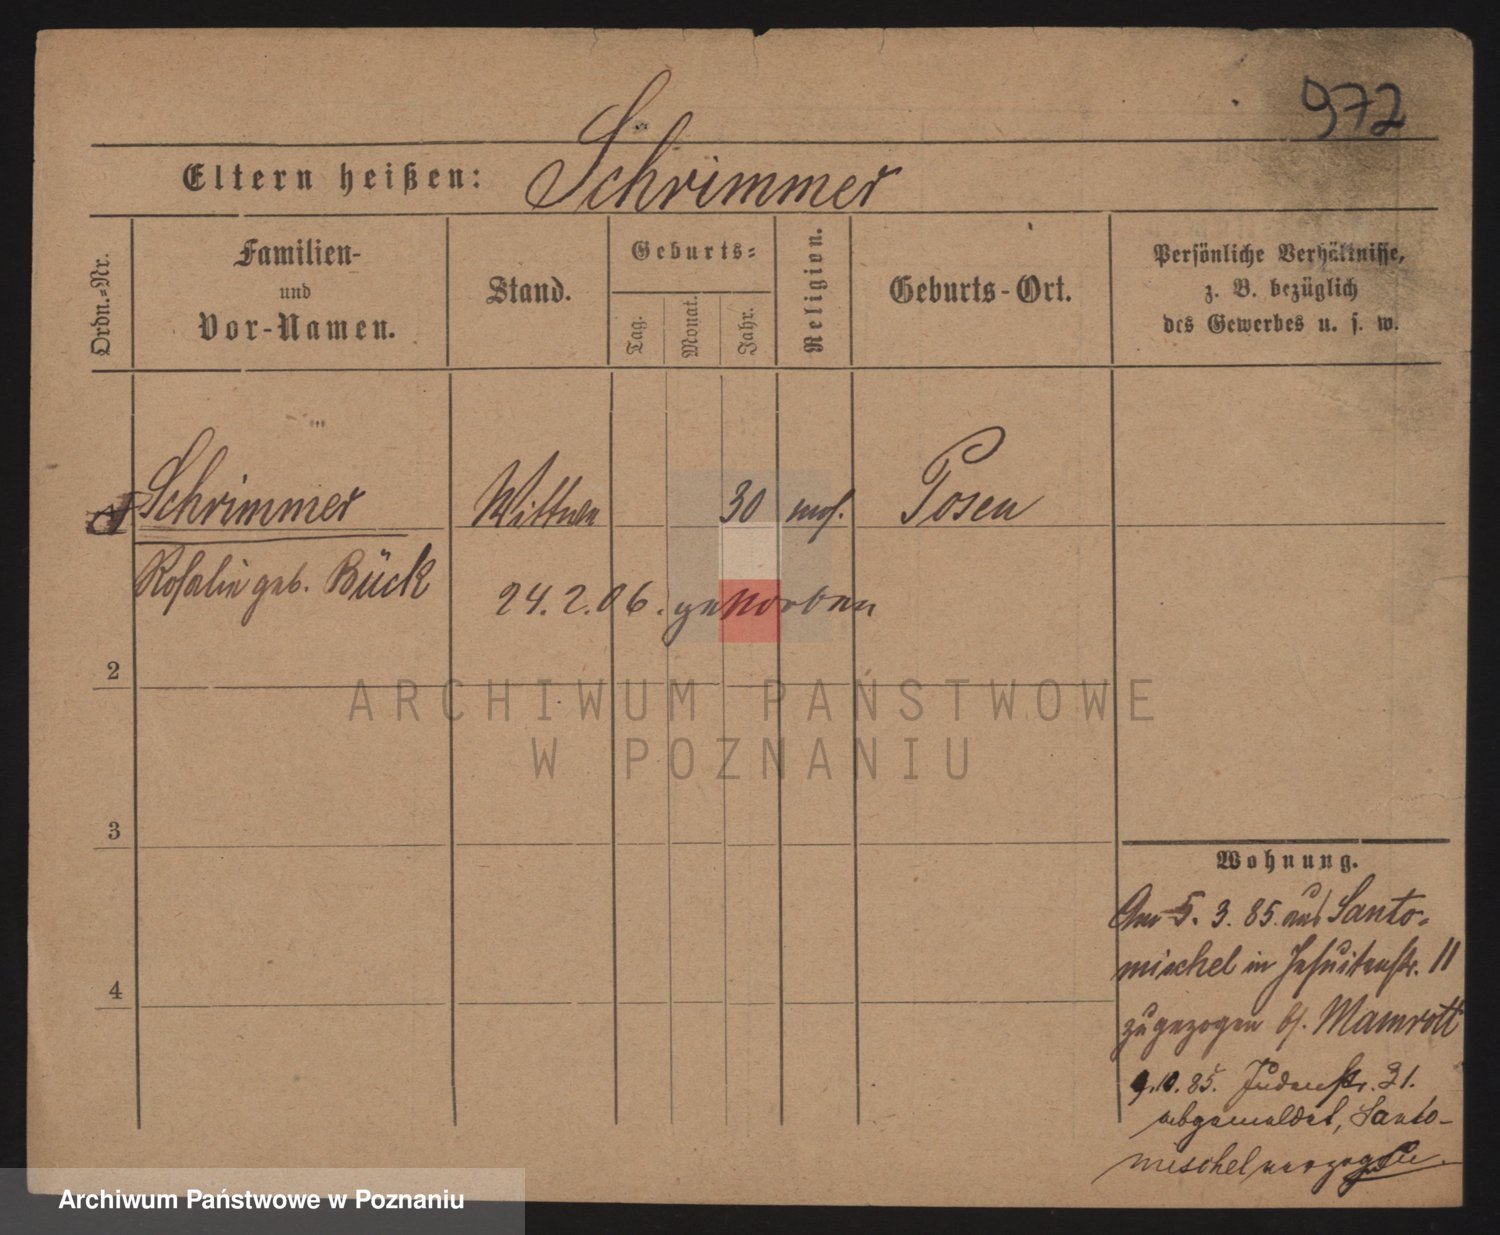 972
Eltern heißen: Schrimmer
Ordn.=Nr.
Familien-
und
Vor-Namen.
Stand.
Geburts=
Tag.
Monat.
Jahr.
Religion.
Geburts-Ort.
Persönliche Verhältnisse,
z. B. bezüglich
des Gewerbes u. s. w.
Schrimmer Wittwe 30 mos. Posen
Rosalie geb. Bück
24.2.06. gestorben
2
3
4
Wohnung.
Am 5. 3. 85. aus Santo-
mischel in Jesuitenstr. 11
zugezogen bs. Mamrott
9.10.85. Judenstr. 31.
abgemeldet, Santo-
mischel verzogen.
ARCHIWUM PAŃSTWOWE
W POZNANIU
Archiwum Państwowe w Poznaniu